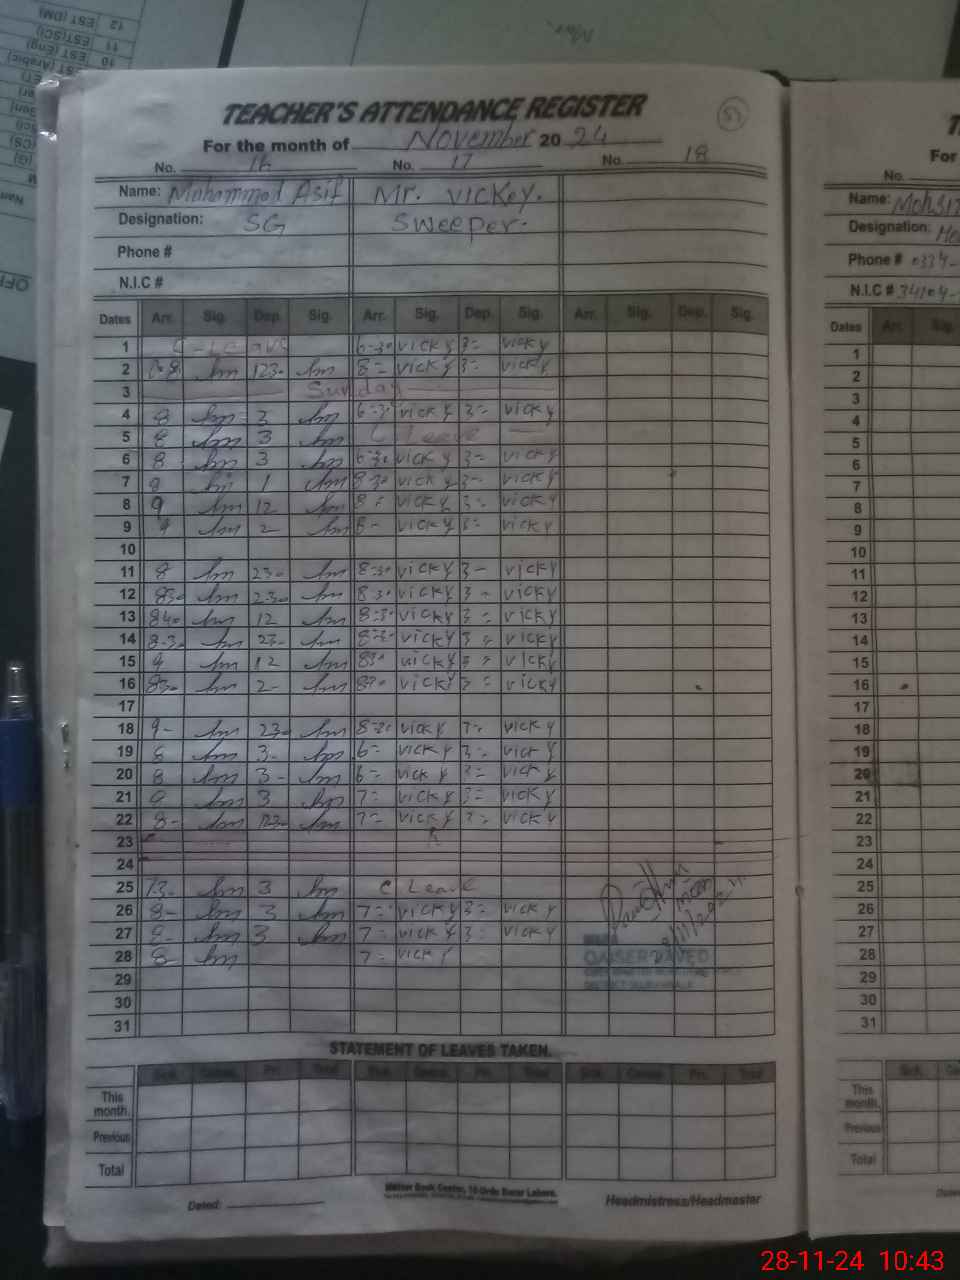 12 EST (DM)
11 EST(SCI)
10 EST (Eng)
EST (Arabic)
TEACHER'S ATTENDANCE REGISTER
53
For the month of November 2024
No. 16 No. 17 No. 18
Name: Muhammad Asif Mr. Vickey.
Designation: SG Sweeper.
Phone #
N.I.C #
Dates Arr. Sig. Dep. Sig. Arr. Sig. Dep. Sig. Arr. Sig. Dep. Sig.
1 C-Leave 6-30 vicky 3= vicky
2 8 123- 8= vicky 3= vicky
3 Sunday
4 8 3 6-3 vicky 3= vicky
5 8 3 C Leave
6 8 3 6-30 vicky 3= vicky
7 9 1 8-30 vicky 3- vicky
8 9 12 8= vicky 3= vicky
9 9 2 8- vicky 3= vicky
10
11 8 230 8-30 vicky 3- vicky
12 830 230 8-30 vicky 3- vicky
13 840 12 8-30 vicky 3= vicky
14 8-30 23- 8-30 vicky 3= vicky
15 9 12 830 vicky 3= vicky
16 830 2- 830 vicky 3= vicky
17
18 9- 230 8-30 vicky 3= vicky
19 8 3- 6= vicky 3= vicky
20 8 3- 6= vicky 3= vicky
21 9 3 7= vicky 3= vicky
22 8- 123- 7= vicky 3= vicky
23
24
25 3 C Leave
26 8- 3 7= vicky 3= vicky
27 8- 3 7= vicky 3= vicky
28 8- 7= vicky
29
30
31
QAISER JAVED
STATEMENT OF LEAVES TAKEN.
Sick. Casual. Pri. Total Sick. Casual. Pri. Total Sick. Casual. Pri. Total
This month.
Previous
Total
Dated:
Headmistress/Headmaster
For
No.
Name: Mohsin
Designation:
Phone # 0334-
N.I.C # 34104-
Dates Arr. Sig.
1
2
3
4
5
6
7
8
9
10
11
12
13
14
15
16
17
18
19
20
21
22
23
24
25
26
27
28
29
30
31
Sick.
This month.
Previous
Total
28-11-24 10:43